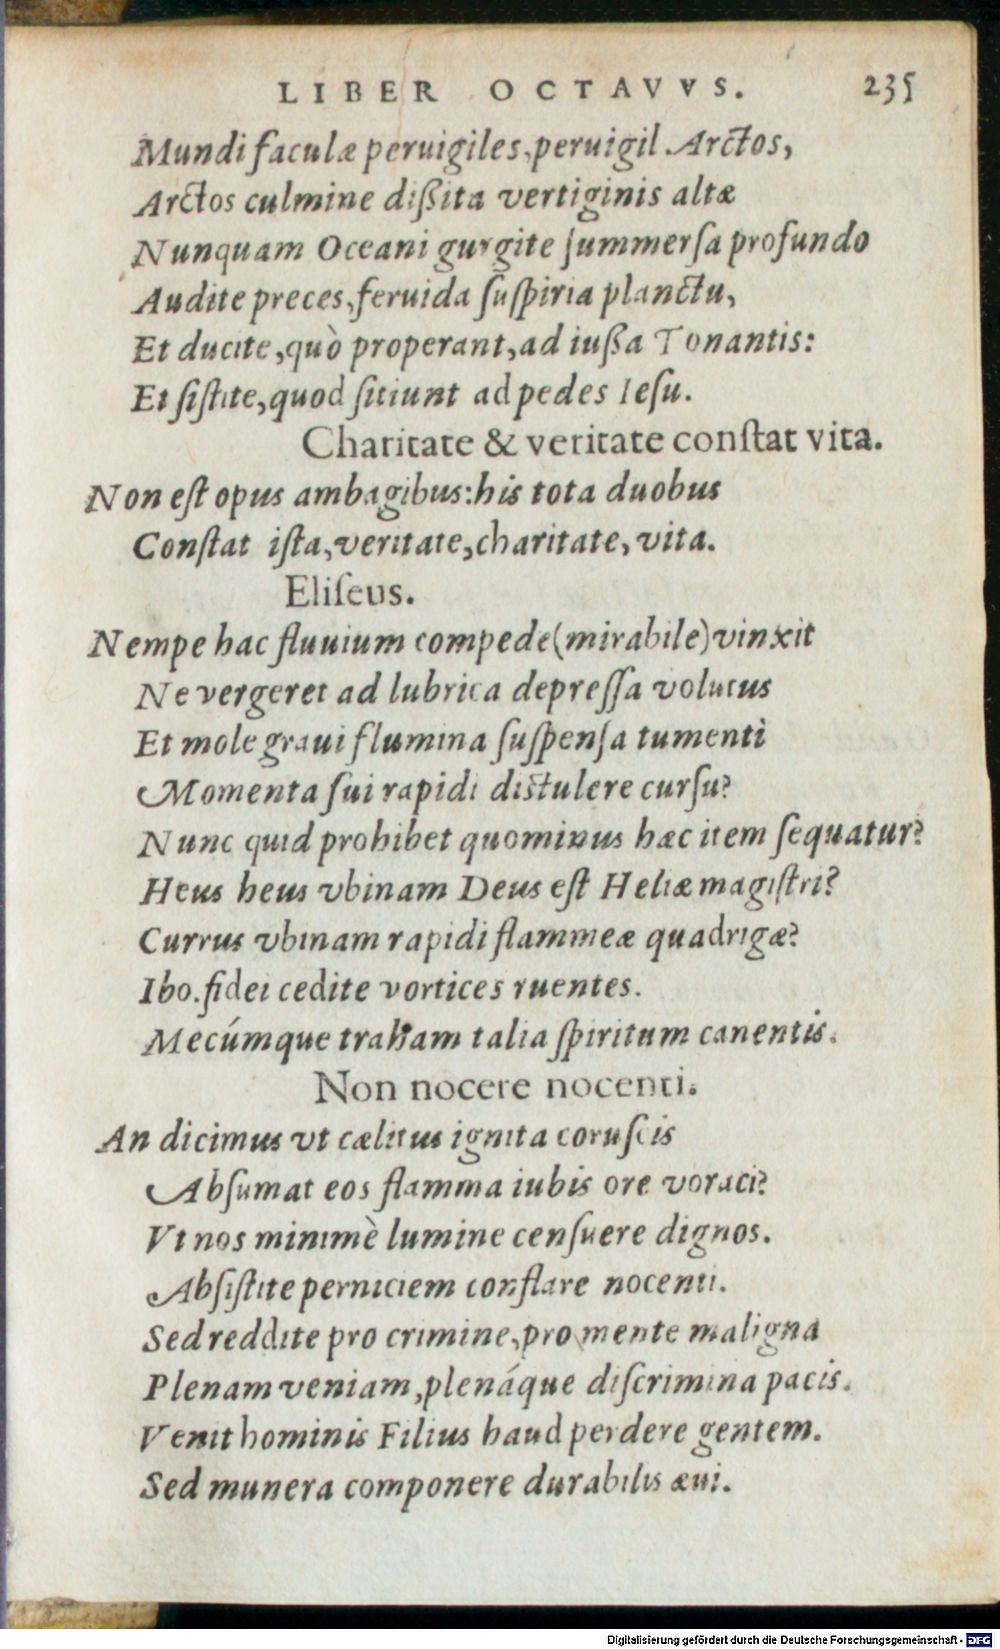 LIBER OCTAVVS. 235
Mundi faculæ peruigiles, peruigil Arctos,
Arctos culmine dißita vertiginis altæ
Nunquam Oceani gurgite ſummerſa profundo
Audite preces, feruida ſuſpiria planctu,
Et ducite, quò properant, ad iußa Tonantis:
Et ſiſtite, quod ſitiunt ad pedes Ieſu.
Charitate & veritate conſtat vita.
Non eſt opus ambagibus: his tota duobus
Conſtat iſta, veritate, charitate, vita.
Eliſeus.
Nempe hac fluuium compede (mirabile) vinxit
Ne vergeret ad lubrica depreſſa volutus
Et mole graui flumina ſuſpenſa tumenti
Momenta ſui rapidi diſtulere curſu?
Nunc quid prohibet quominus hæc item ſequatur?
Heus heus vbinam Deus eſt Heliæ magiſtri?
Currus vbinam rapidi flammeæ quadrigæ?
Ibo. fidei cedite vortices ruentes.
Mecúmque traham talia ſpiritum canentis.
Non nocere nocenti.
An dicimus vt cælitus ignita coruſcis
Abſumat eos flamma iubis ore voraci?
Vt nos minimè lumine cenſuere dignos.
Abſiſtite perniciem conflare nocenti.
Sed reddite pro crimine, pro mente maligna
Plenam veniam, plenáque diſcrimina pacis.
Venit hominis Filius haud perdere gentem.
Sed munera componere durabilis æui.
Digitalisierung gefördert durch die Deutsche Forschungsgemeinschaft - DFG